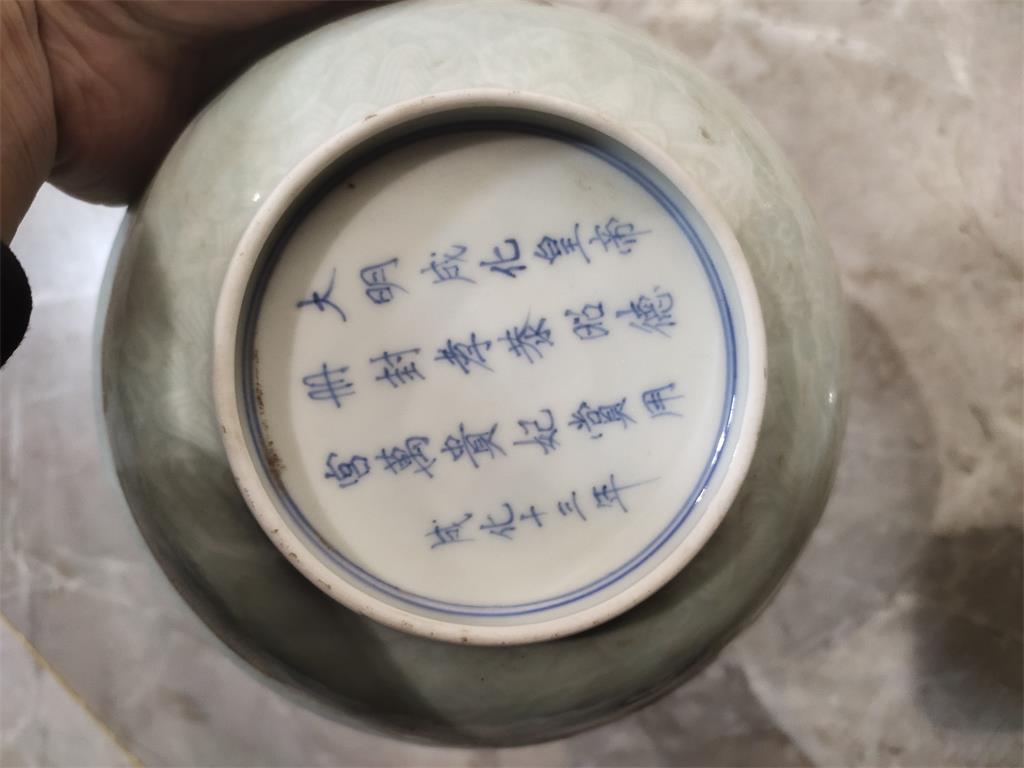 大明成化皇帝
冊封孝泰昭德
宮萬貴妃賞用
成化十三年